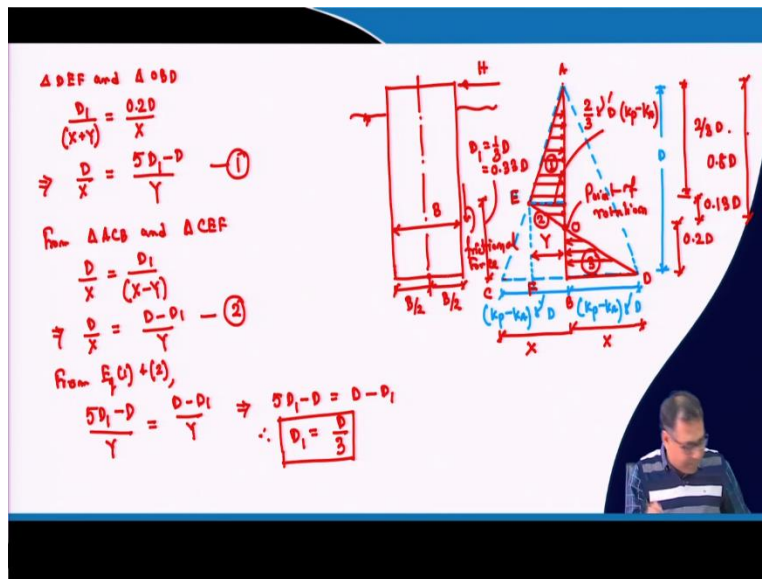 Δ DEF and Δ OBD
D₁/(X+Y) = 0.2D/X
⇒ D/X = (5D₁-D)/Y —①
From Δ ACB and Δ CEF
D/X = D₁/(X-Y)
⇒ D/X = (D-D₁)/Y —②
From Eq(1)+(2),
(5D₁-D)/Y = (D-D₁)/Y ⇒ 5D₁-D = D-D₁
∴ D₁ = D/3
H
B
B/2 B/2
frictional
force
D₁ = ⅓D
= 0.33D
A
2/3 γ'D (Kp-KA)
①
E
②
Y
O
Point of
rotation
③
C F B D
(Kp-KA) γ'D (Kp-KA) γ'D
X X
D
2/3 D.
0.8D
0.13D
0.2D